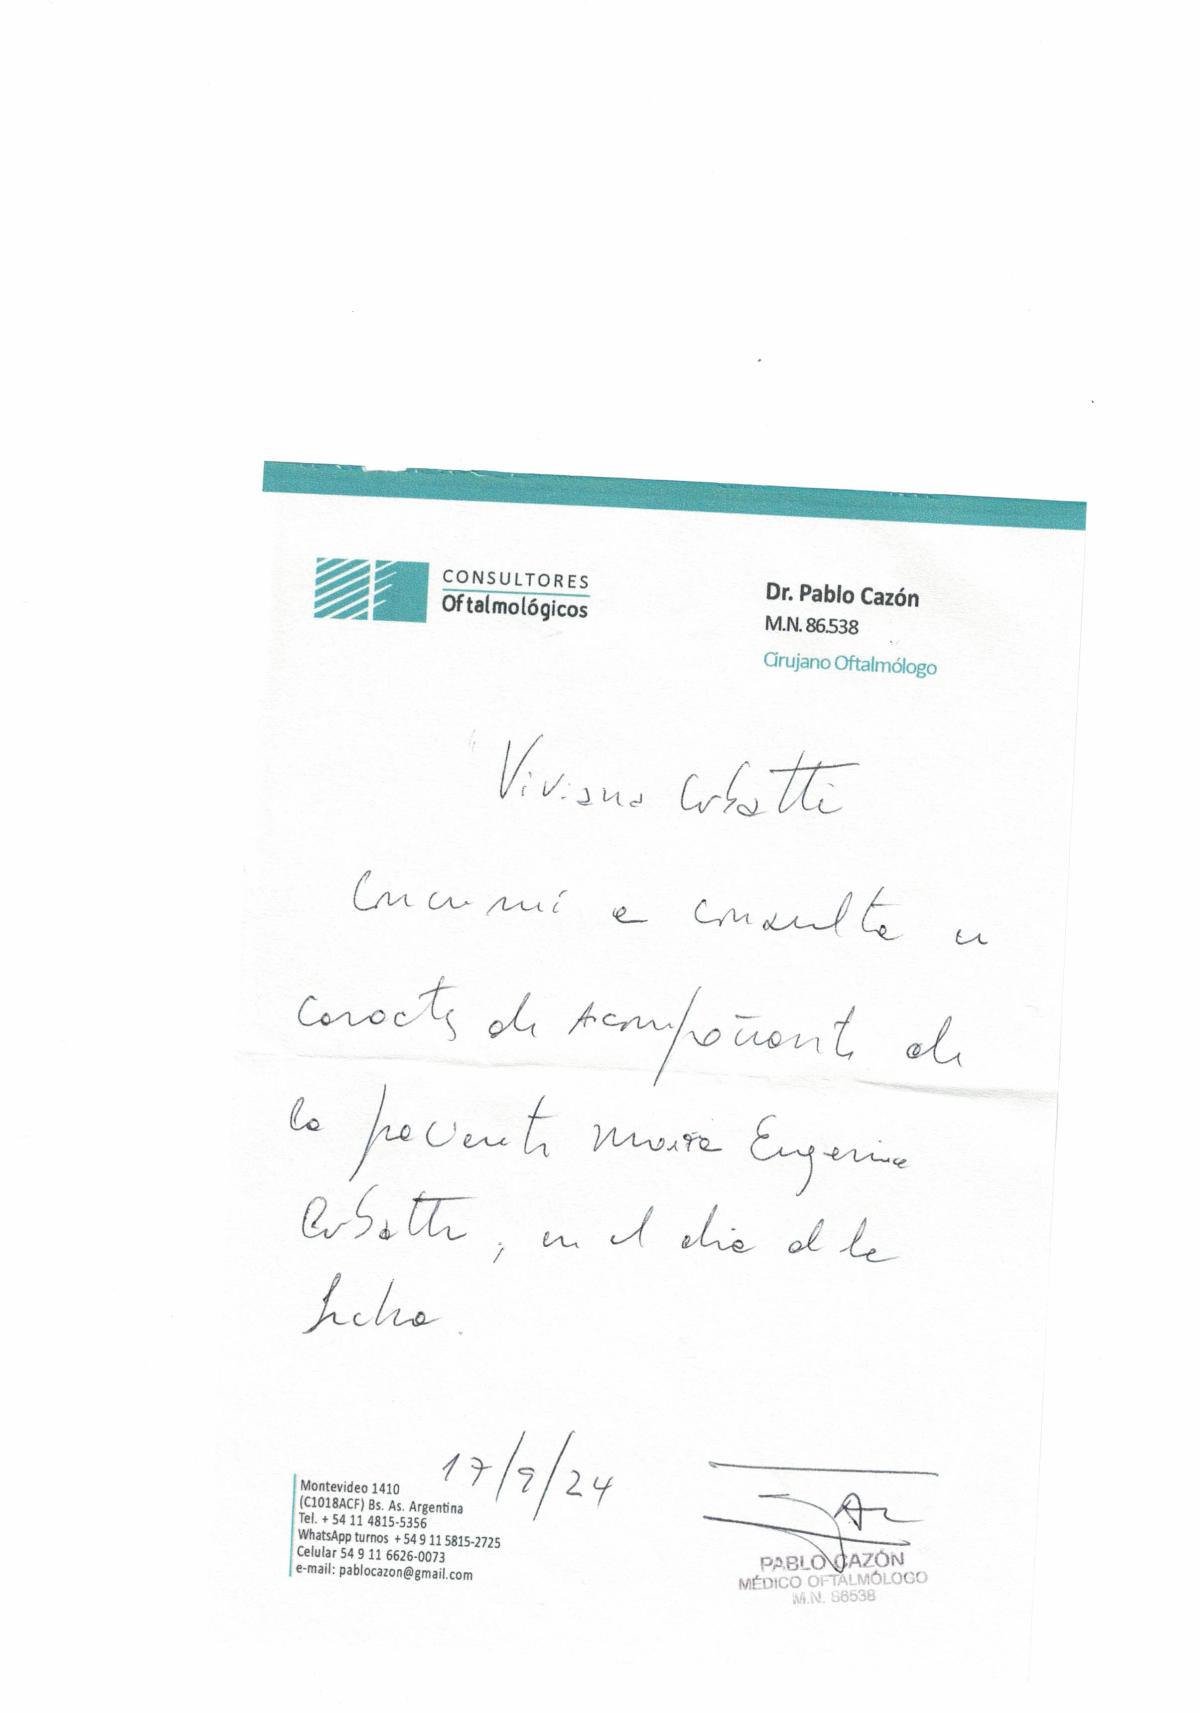 CONSULTORES
Oftalmológicos
Dr. Pablo Cazón
M.N. 86.538
Cirujano Oftalmólogo
Viviana Corbatti
Concurrió a consulta en
caracter de acompañante de
la paciente María Eugenia
Corbatti, en el día de la
fecha.
17/9/24
Montevideo 1410
(C1018ACF) Bs. As. Argentina
Tel. + 54 11 4815-5356
WhatsApp turnos + 54 9 11 5815-2725
Celular 54 9 11 6626-0073
e-mail: pablocazon@gmail.com
PABLO CAZÓN
MÉDICO OFTALMÓLOGO
M.N. 86538